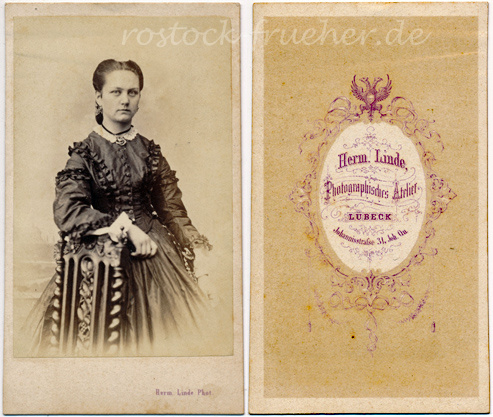 rostock-frueher.de
Herm. Linde Phot.
Herm. Linde.
Photographisches Atelier
LÜBECK
Johannisstraße 31, Joh. Qu.